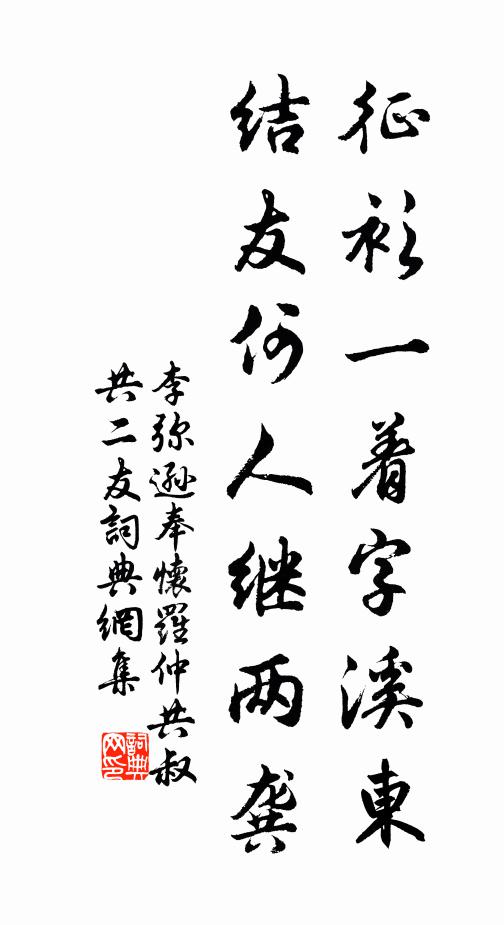 征衫一着字溪東
结友何人继两龚
李弥遜奉懷羅仲共叔
共二友詞典網集
詞典网印